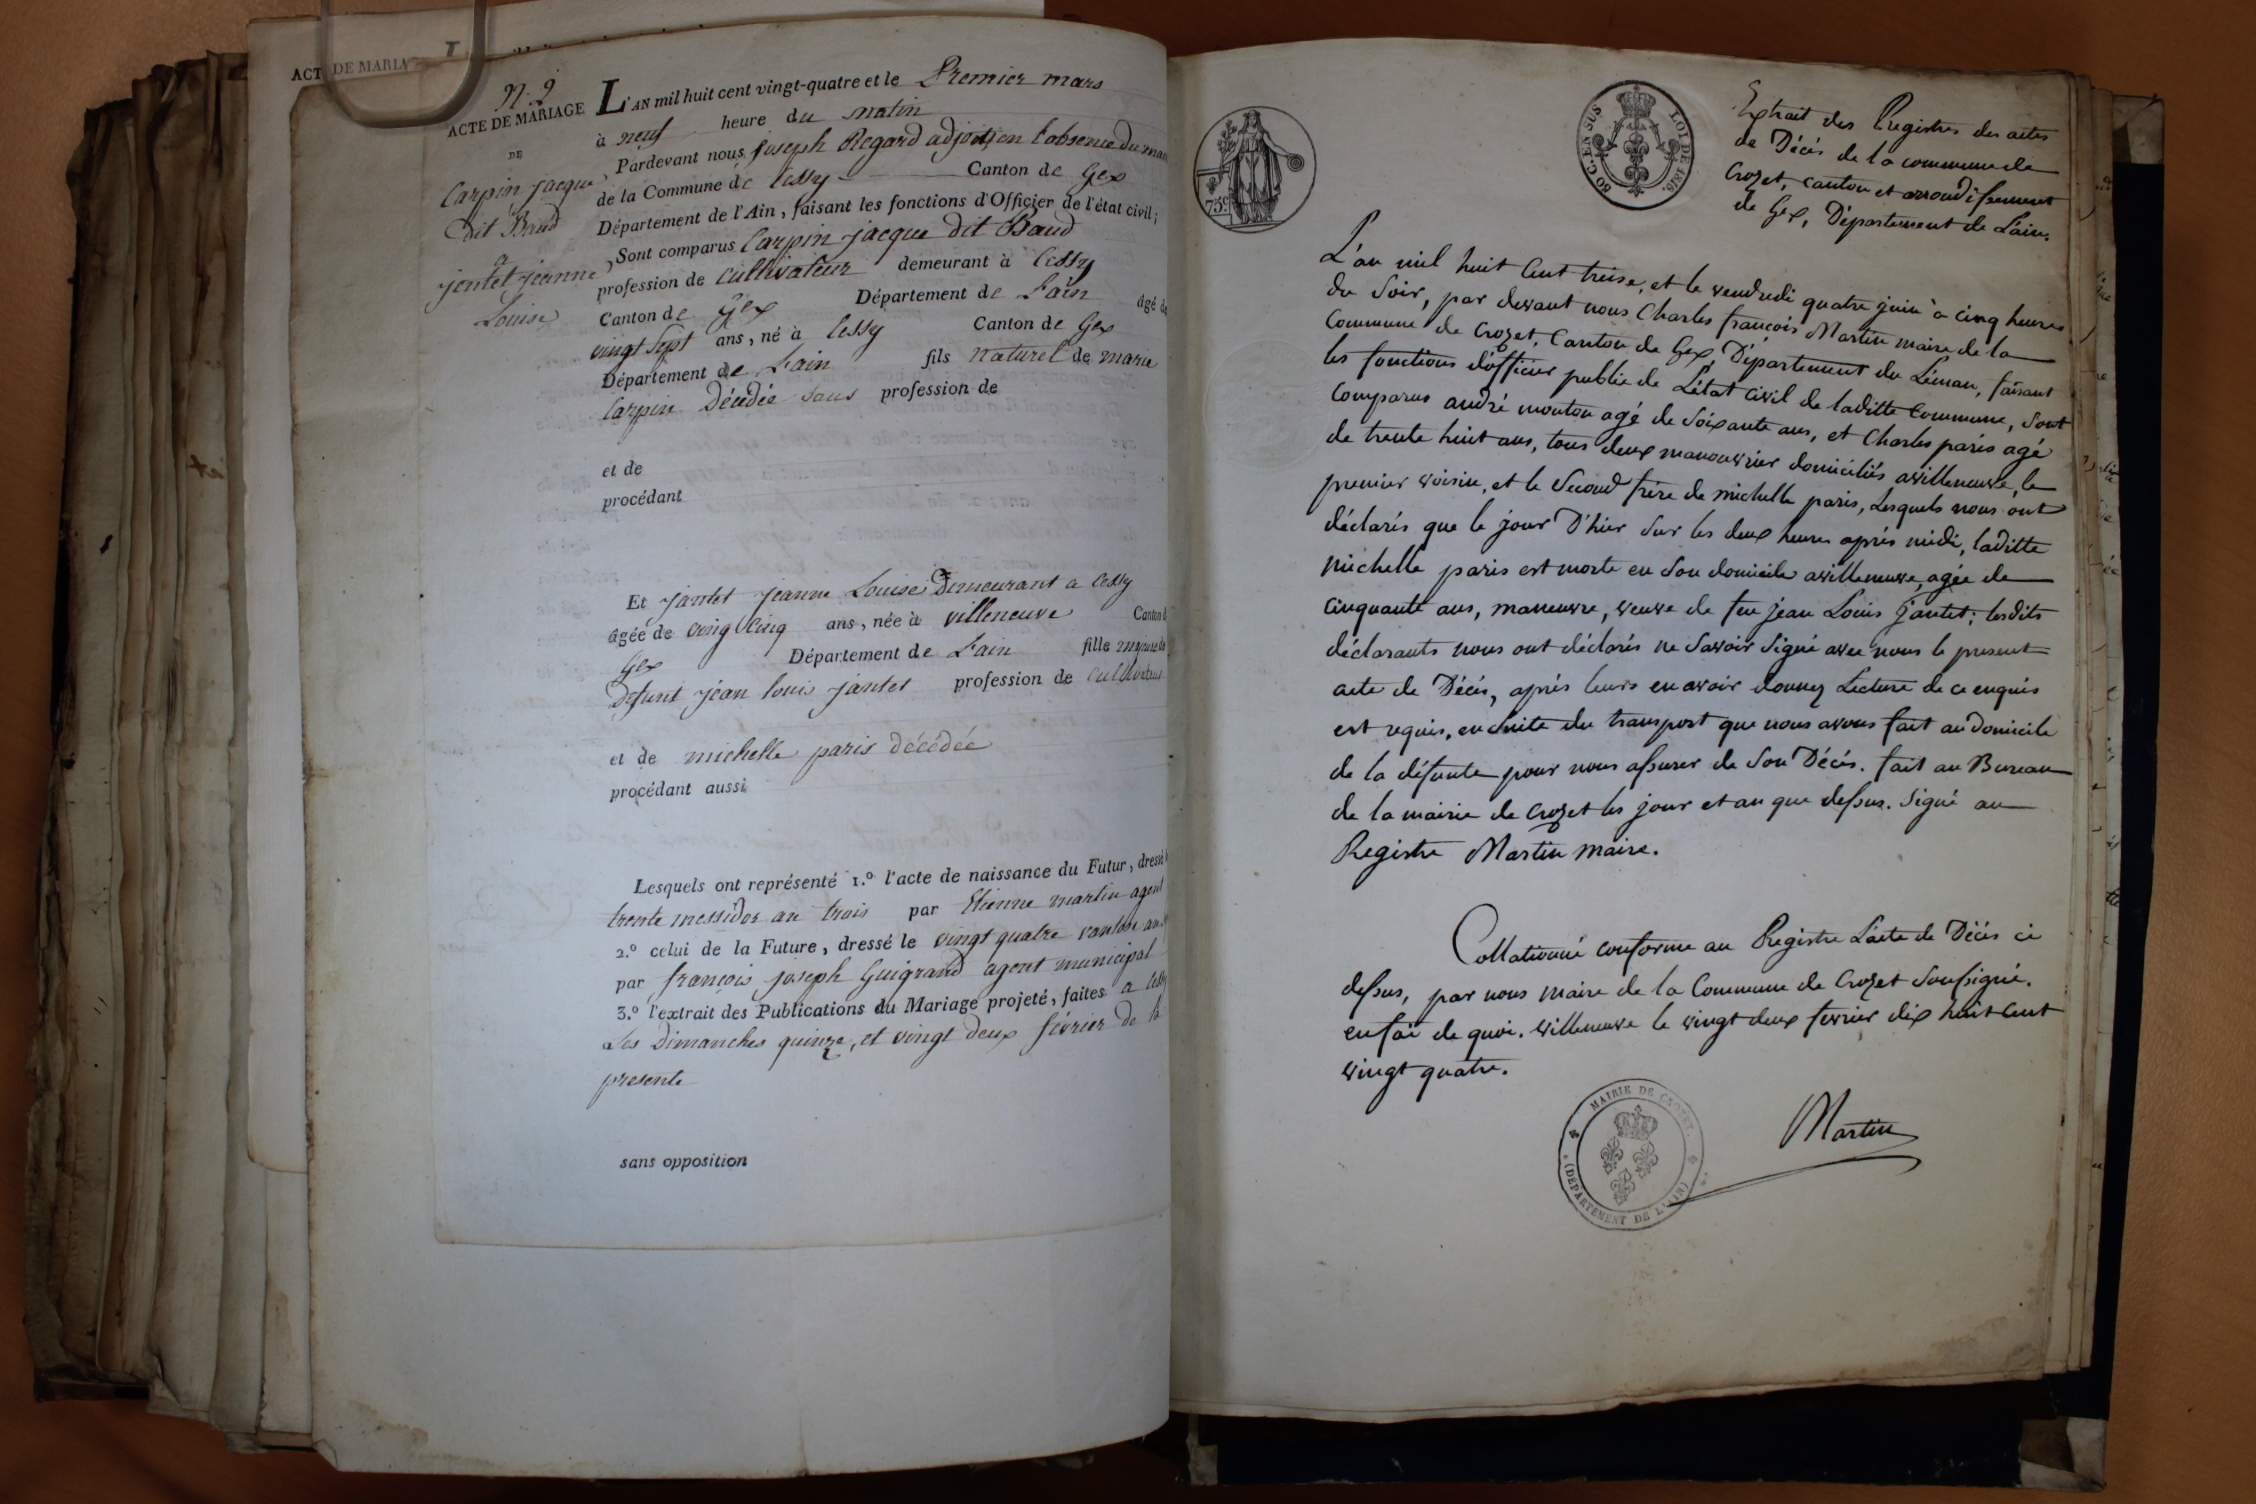 ACTE DE MARIA
N. 9
ACTE DE MARIAGE
DE
Carpin jacque
dit Baud
a
jantet jeanne
Louise
L'AN mil huit cent vingt-quatre et le Premier mars
à neuf heure du matin
Pardevant nous joseph Regard adjoit en l'absence du mair
de la Commune de Cessy Canton de Gex
Département de l'Ain, faisant les fonctions d'Officier de l'état civil;
Sont comparus Carpin jacque dit Baud
profession de cultivateur demeurant à Cessy
Canton de Gex Département de L'ain âgé de
vingt sept ans, né à Cessy Canton de Gex
Département de L'ain fils naturel de marie
Carpin Décédée sans profession de
et de
procédant
Et jantet jeanne Louise Demeurant a Cessy
âgée de vingt cinq ans, née à villeneuve Canton d
Gex Département de L'ain fille majeure de
defunt jean louis jantet profession de cultivateur
et de michelle paris décédée
procédant aussi
Lesquels ont représenté 1.º l'acte de naissance du Futur, dressé l
trente messidor an trois par Etienne martin agent
2.º celui de la Future, dressé le vingt quatre vantose an
par françois joseph Guigrand agent municipal
3.º l'extrait des Publications du Mariage projeté, faites a Cessy
Les Dimanches quinze, et vingt deux février de la
presente
sans opposition
75 C.
80 C. EN SUS LOI DE 1816.
Extrait des Registres des actes
de Décés de la commune de
Crozet, canton et arrondissement
de Gex, Département de L'ain.
L'an mil huit Cent treise, et le vendredi quatre juin à cinq heures
du Soir, par devant nous Charles françois Martin maire de la
Commune de Crozet, Canton de Gex, Département du Léman, faisant
les fonctions d'officier public de L'état Civil de laditte Commune, Sont
Comparus andré mouton agé de Soixante ans, et Charles paris agé
de trente huit ans, tous deux manouvrier domiciliés a villeneuve, le
premier voisin, et le Second frère de michelle paris, Lesquels nous ont
déclarés que le jour D'hier Sur les deux heures après midi, laditte
michelle paris est morte en Son domicile a villeneuve, agée de
cinquante ans, maneuvre, veuve de feu jean Louis jantet; lesdits
déclarants nous ont déclarés ne Savoir Signé avec nous le present
acte de Décés, après leurs en avoir donnez Lecture de ce enquis
est requis, en Suite du transport que nous avons fait au domicile
de la défunte pour nous assurer de Son Décés. fait au Bureau
de la mairie de Crozet les jour et an que dessus. Signé au
Registre Martin maire.
Collationné conforme au Registre L'acte de Décés ci
dessus, par nous maire de la Commune de Crozet Soussigné.
en foi de quoi. villeneuve le vingt deux fevrier dix huit Cent
vingt quatre.
Martin
MAIRIE DE CROZET. (DÉPARTEMENT DE L'AIN)